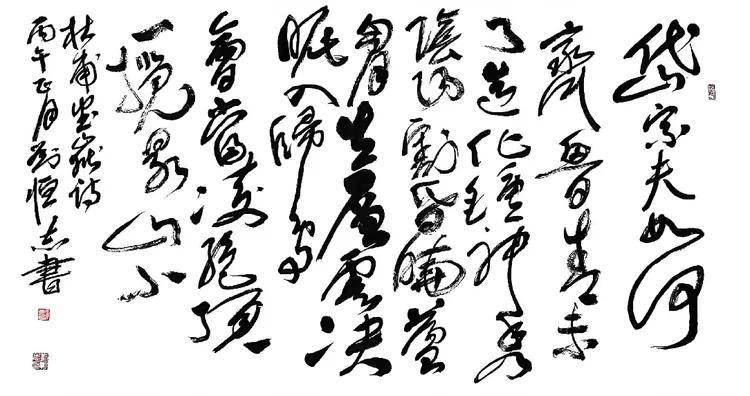 岱宗夫如何
齊魯青未
了造化鍾神秀
陰陽割昏曉蕩
胸生層雲決
眦入歸鳥
會當凌絕頂
一覽眾山小
杜甫望嶽詩
丙午正月劉恒志書